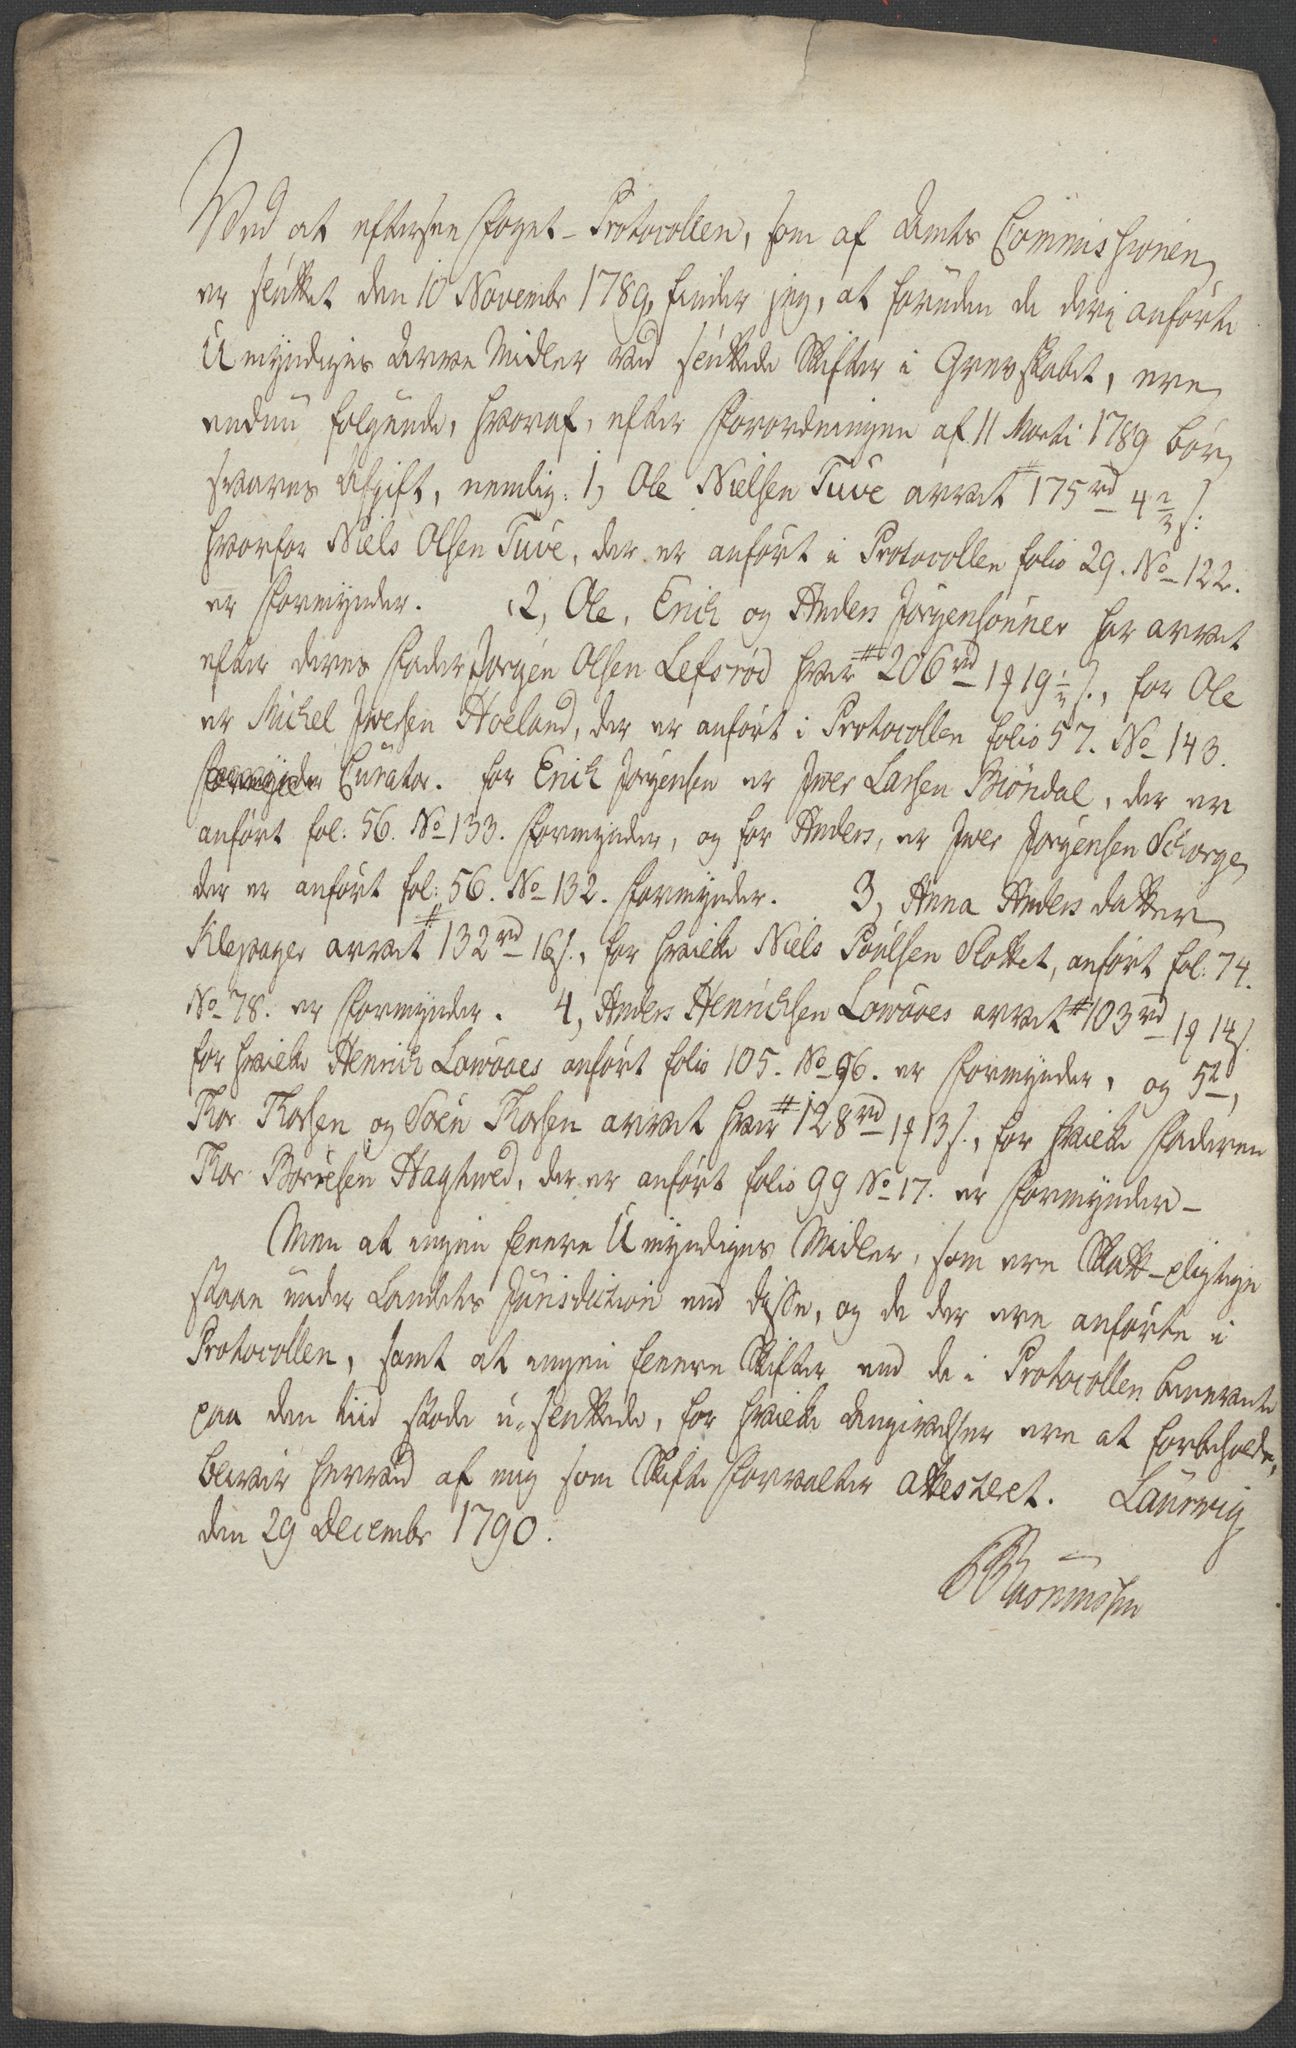 Ved at eftersee Foget-Protocollen, som af Amts Commissionen
er sluttet den 10 Novembr 1789, finder jeg, at foruden de deri anförte
Umyndiges Arve Midler ved sluttede Skifter i Grevskabet, ere
endnu fölgende, hvoraf, efter Forordningen af 11 Marti 1789 bör
svares Afgift, nemlig: 1, Ole Nielsen Tuve arvet # 175 rd 4 2/3 s:
hvorfor Niels Olsen Tuve, der er anfört i Protocollen folio 29. No 122.
er Formynder. 2, Ole, Erich og Anders Jörgensönner har arvet
efter deres Fader Jörgen Olsen Lefsröd hver # 206 rd 1 # 19 1/2 s., for Ole
er Michel Iversen Hoeland, der er anfört i Protocollen folio 57. No 143.
Formynder Curator. for Erich Jörgensen er Iver Larsen Biöndal, der er
anfört fol: 56. No 133. Formynder, og for Anders, er Iver Jörgensen Schorge
der er anfört fol: 56. No 132. Formynder. 3, Anna Anders datter
Klepager arvet # 132 rd 16 s., for hvilke Niels Poulsen Slottet, anfört fol: 74.
No 78. er Formynder. 4, Anders Henrichsen Lowaaes arvet # 103 rd 1 # 14 s.
for hvilke Henrich Lowaaes anfört folio 105. No 96. er Formynder, og 5te,
Thor Thorsen og Sören Thorsen arvet hver # 128 rd 1 # 13 s., for hvilke Faderen
Thor Börresen Haghwed, der er anfört folio 99 No 17. er Formynder -
Men at ingen fleere Umyndiges Midler, som ere Skatt-pligtige
staae under Landets Jurisdiction end disse, og de der ere anförte i
Protocollen, samt at ingen fleere Skifter end de i Protocollen benevnte
paa den tiid stode u-sluttede, for hvilke Angivelser ere at forbeholde,
bliver herved af mig som Skifte Forvalter attesteret. Laurwig
den 29 Decembr 1790.
Rasmussen